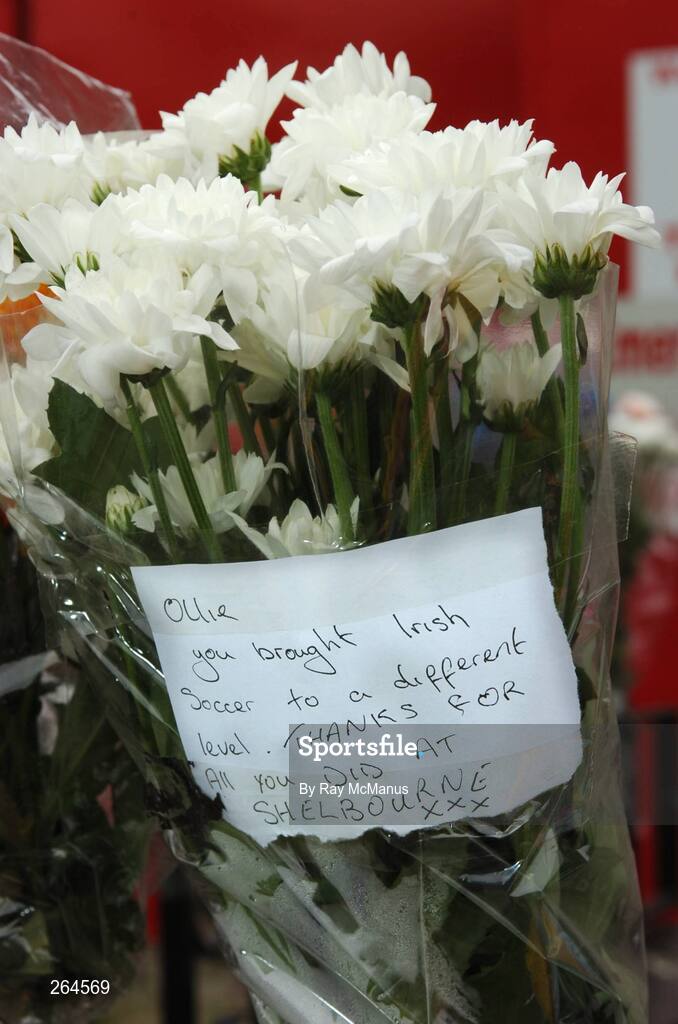 Ollie
you brought Irish
Soccer to a different
level. THANKS FOR
All you DID AT
SHELBOURNE
xxx
Sportsfile
By Ray McManus
264569